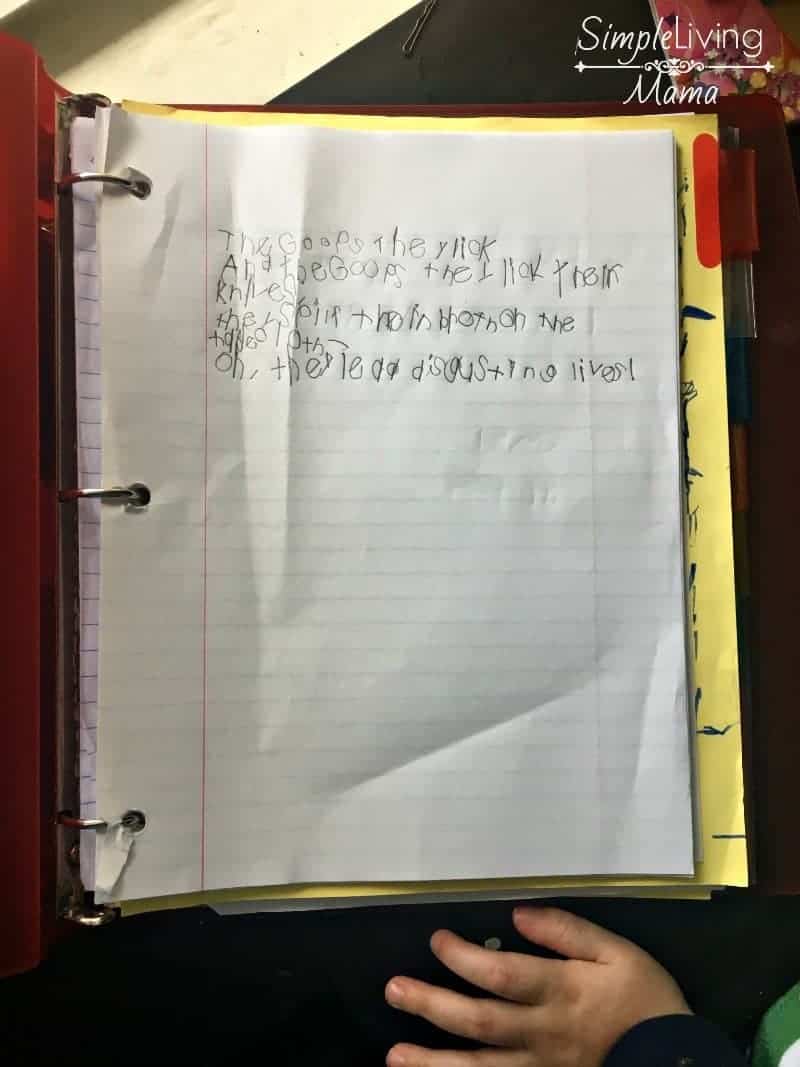 SimpleLiving
Mama
The Goops they lick
And the Goops they lick their
knives
they Spill their broth on the
tableCloth
Oh, they lead disgusting lives!